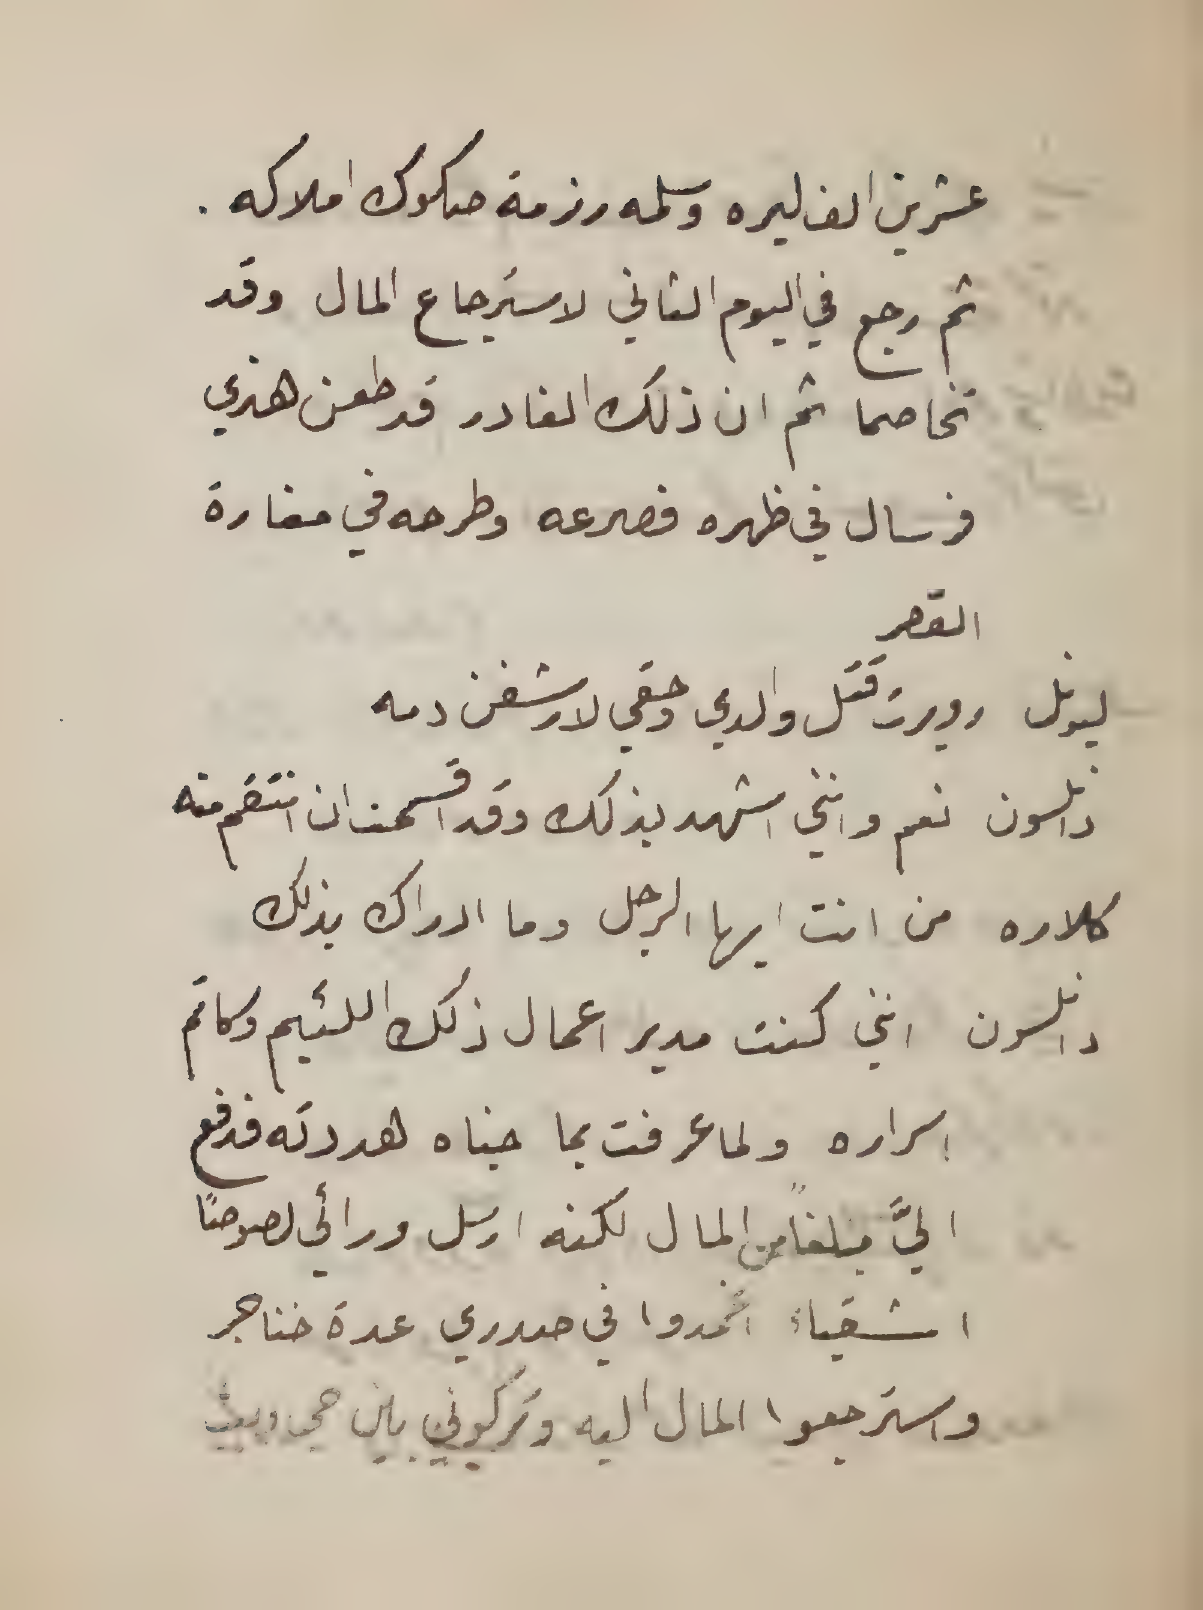 عشرين الف ليره وسلمه رزمة صكوك املاكه .
ثم رجع في اليوم الثاني لاسترجاع المال وقد
تخاصما ثم ان ذلك الغادر قد طعن هنري
فرسال في ظهره فصرعه وطرحه في مغارة
القصر
ليونل روبرت قتل والدي وحقي لارشفن دمه
دانلسون نعم وانني اشهد بذلك وقد اقسمت ان انتقم منه
كلاره من انت ايها الرجل وما ادراك بذلك
دانلسون انني كنت مدير اعمال ذلك اللئيم وكاتم
اسراره ولما عرفت بما جناه هددته فدفع
اليَّ مبلغاً من المال لكنه ارسل ورائي لصوصًا
اشقياء اغمدوا في صدري عدة خناجر
واسترجعوا المال اليه وتركوني بين حي وميت